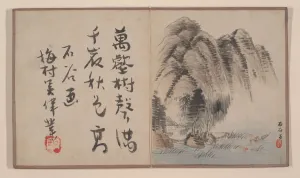 萬壑樹聲滿
千崖秋氣高
石谷画
梅村吳偉業